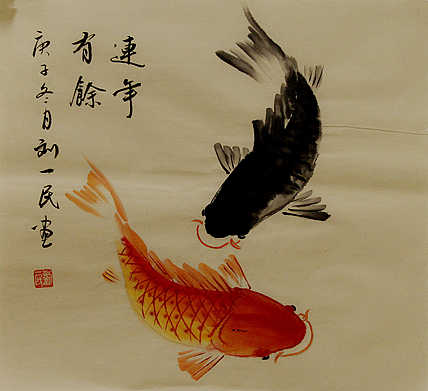 連年
有餘
庚子冬月刘一民畫